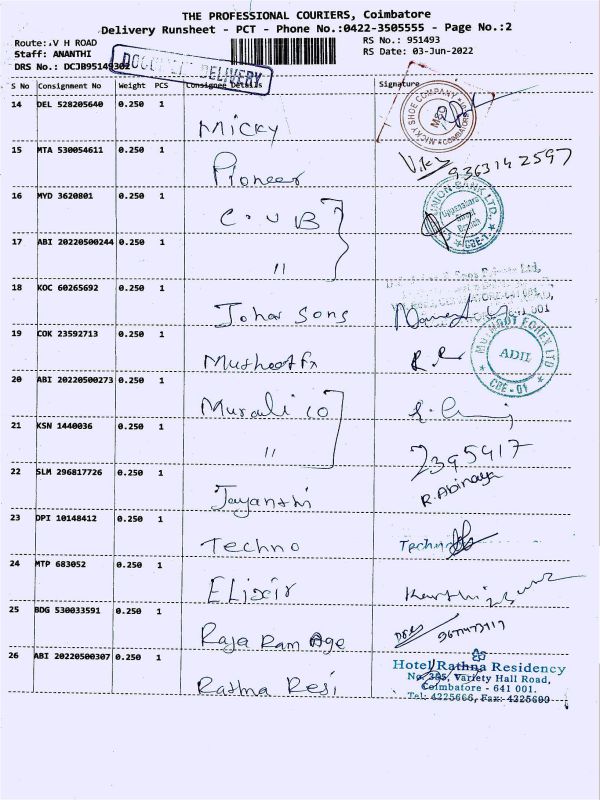 THE PROFESSIONAL COURIERS, Coimbatore
Delivery Runsheet - PCT - Phone No.:0422-3505555 - Page No.:2
Route:.V H ROAD RS No.: 951493
Staff: ANANTHI RS Date: 03-Jun-2022
DRS No.: DCJB95149302
DELIVERY
S No Consignment No Weight PCS Consignee Details Signature
14 DEL 528205640 0.250 1 Micky
MICKY SHOE COMPANY
15 MTA 530054611 0.250 1 Pioneer 9363142597
16 MYD 3620801 0.250 1 C.U.B
UNION BANK LTD. Branch CBE-1
17 ABI 20220500244 0.250 1 "
18 KOC 60265692 0.250 1 Johar Sons
19 COK 23592713 0.250 1 Muthootfx R.R
MUTHOOT FOREX LTD ADIL CBE-01
20 ABI 20220500273 0.250 1 Murali co
21 KSN 1440036 0.250 1 " 2395917
22 SLM 296817726 0.250 1 Jayanthi R.Abinaya
23 DPI 10148412 0.250 1 Techno Techno
24 MTP 683052 0.250 1 ELixir
25 BDG 530033591 0.250 1 Raja Ram Age
26 ABI 20220500307 0.250 1 Rathna Resi
Hotel Rathna Residency
No. 355, Variety Hall Road,
Coimbatore - 641 001.
Tel: 4225666, Fax: 4225600